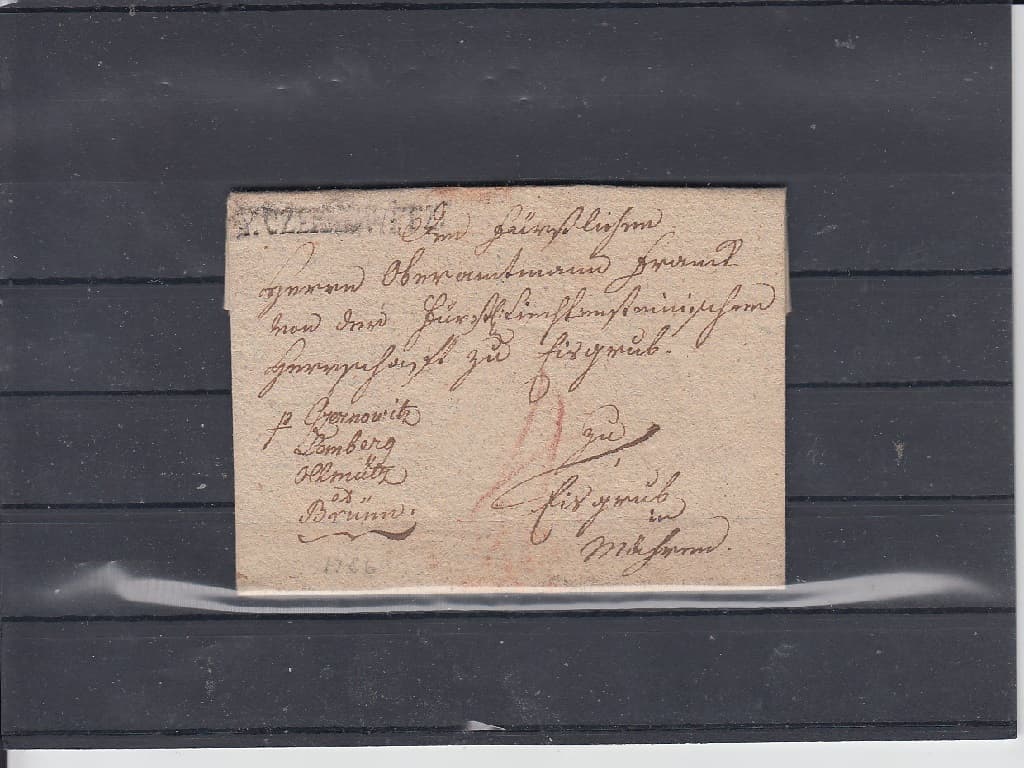 V. CZERNOWITZ
Dem Fürstlichen
Herrn Oberamtmann Frank
von der Fürstl: Liechtensteinischen
Herrschaft zu Eisgrub.
p Czernowitz
Lemberg
Ollmütz
Brünn.
zu
Eisgrub
in
Mähren.
1786